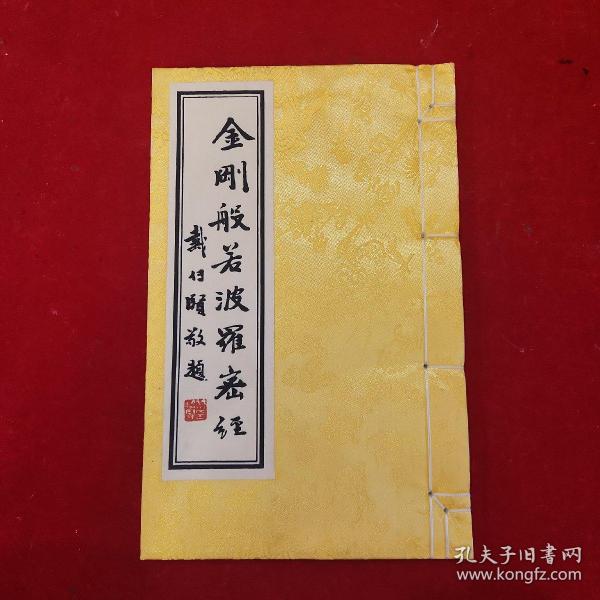 金剛般若波羅蜜經
戴
敬題
孔夫子旧书网
www.kongfz.com